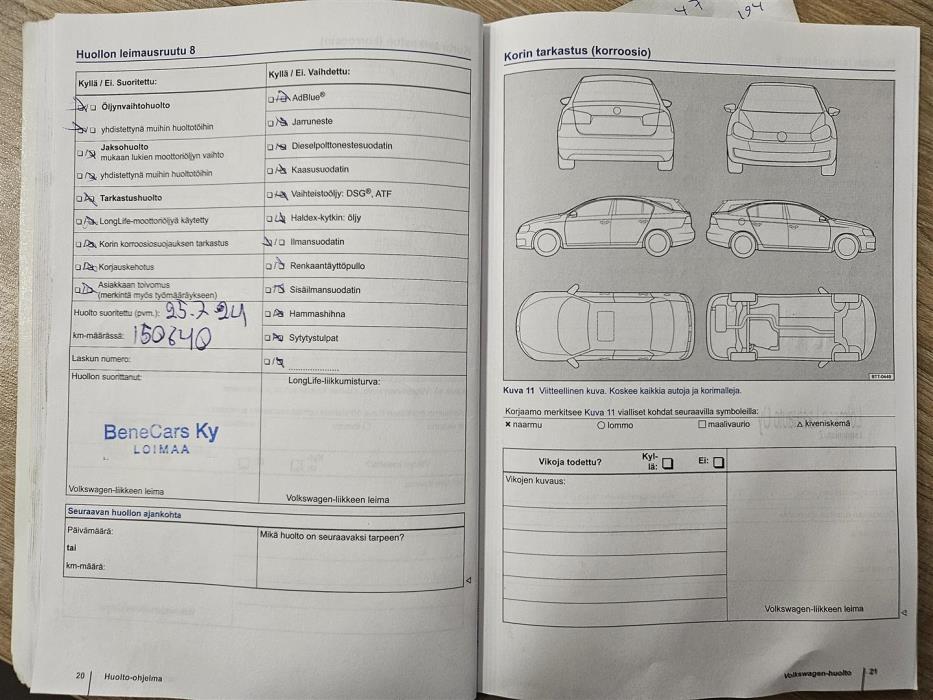 Huollon leimausruutu 8
Kyllä / Ei. Suoritettu:
Öljynvaihtohuolto
yhdistettynä muihin huoltotöihin
Jaksohuolto
mukaan lukien moottoriöljyn vaihto
yhdistettynä muihin huoltotöihin
Tarkastushuolto
LongLife-moottoriöljyä käytetty
Korin korroosiosuojauksen tarkastus
Korjauskehotus
Asiakkaan toivomus
(merkintä myös työmääräykseen)
Huolto suoritettu (pvm.): 25.7 24
km-määrässä: 150640
Laskun numero:
Huollon suorittanut:
BeneCars Ky
LOIMAA
Volkswagen-liikkeen leima
Kyllä / Ei. Vaihdettu:
AdBlue®
Jarruneste
Dieselpolttonestesuodatin
Kaasusuodatin
Vaihteistoöljy: DSG®, ATF
Haldex-kytkin: öljy
Ilmansuodatin
Renkaantäyttöpullo
Sisäilmansuodatin
Hammashihna
Sytytystulpat
LongLife-liikkumisturva:
Volkswagen-liikkeen leima
Seuraavan huollon ajankohta
Päivämäärä:
tai
km-määrä:
Mikä huolto on seuraavaksi tarpeen?
20 Huolto-ohjelma
194
Korin tarkastus (korroosio)
BTT-0449
Kuva 11 Viitteellinen kuva. Koskee kaikkia autoja ja korimalleja.
Korjaamo merkitsee Kuva 11 vialliset kohdat seuraavilla symboleilla:
× naarmu ○ lommo □ maalivaurio △ kiveniskemä
Vikoja todettu? Kyl-
lä: □ Ei: □
Vikojen kuvaus:
Volkswagen-liikkeen leima
Volkswagen-huolto 21